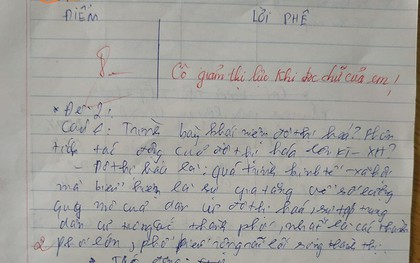 ĐIỂM LỜI PHÊ
8- Cô giảm thị lực khi đọc chữ của em!
* Đề 2:
Câu 1: Trình bày khái niệm đô thị hoá? Phân
tích tác động của đô thị hoá đến KT-XH?
- Đô thị hoá là: quá trình kinh tế-xã hội
mà biểu hiện là sự gia tăng về số lượng
quy mô của dân cư đô thị hoá, sự tập trung
dân cư trong các thành phố, nhất là các thành
2 phố lớn, phổ biến rộng rãi lối sống thành thị.
* Tác động: